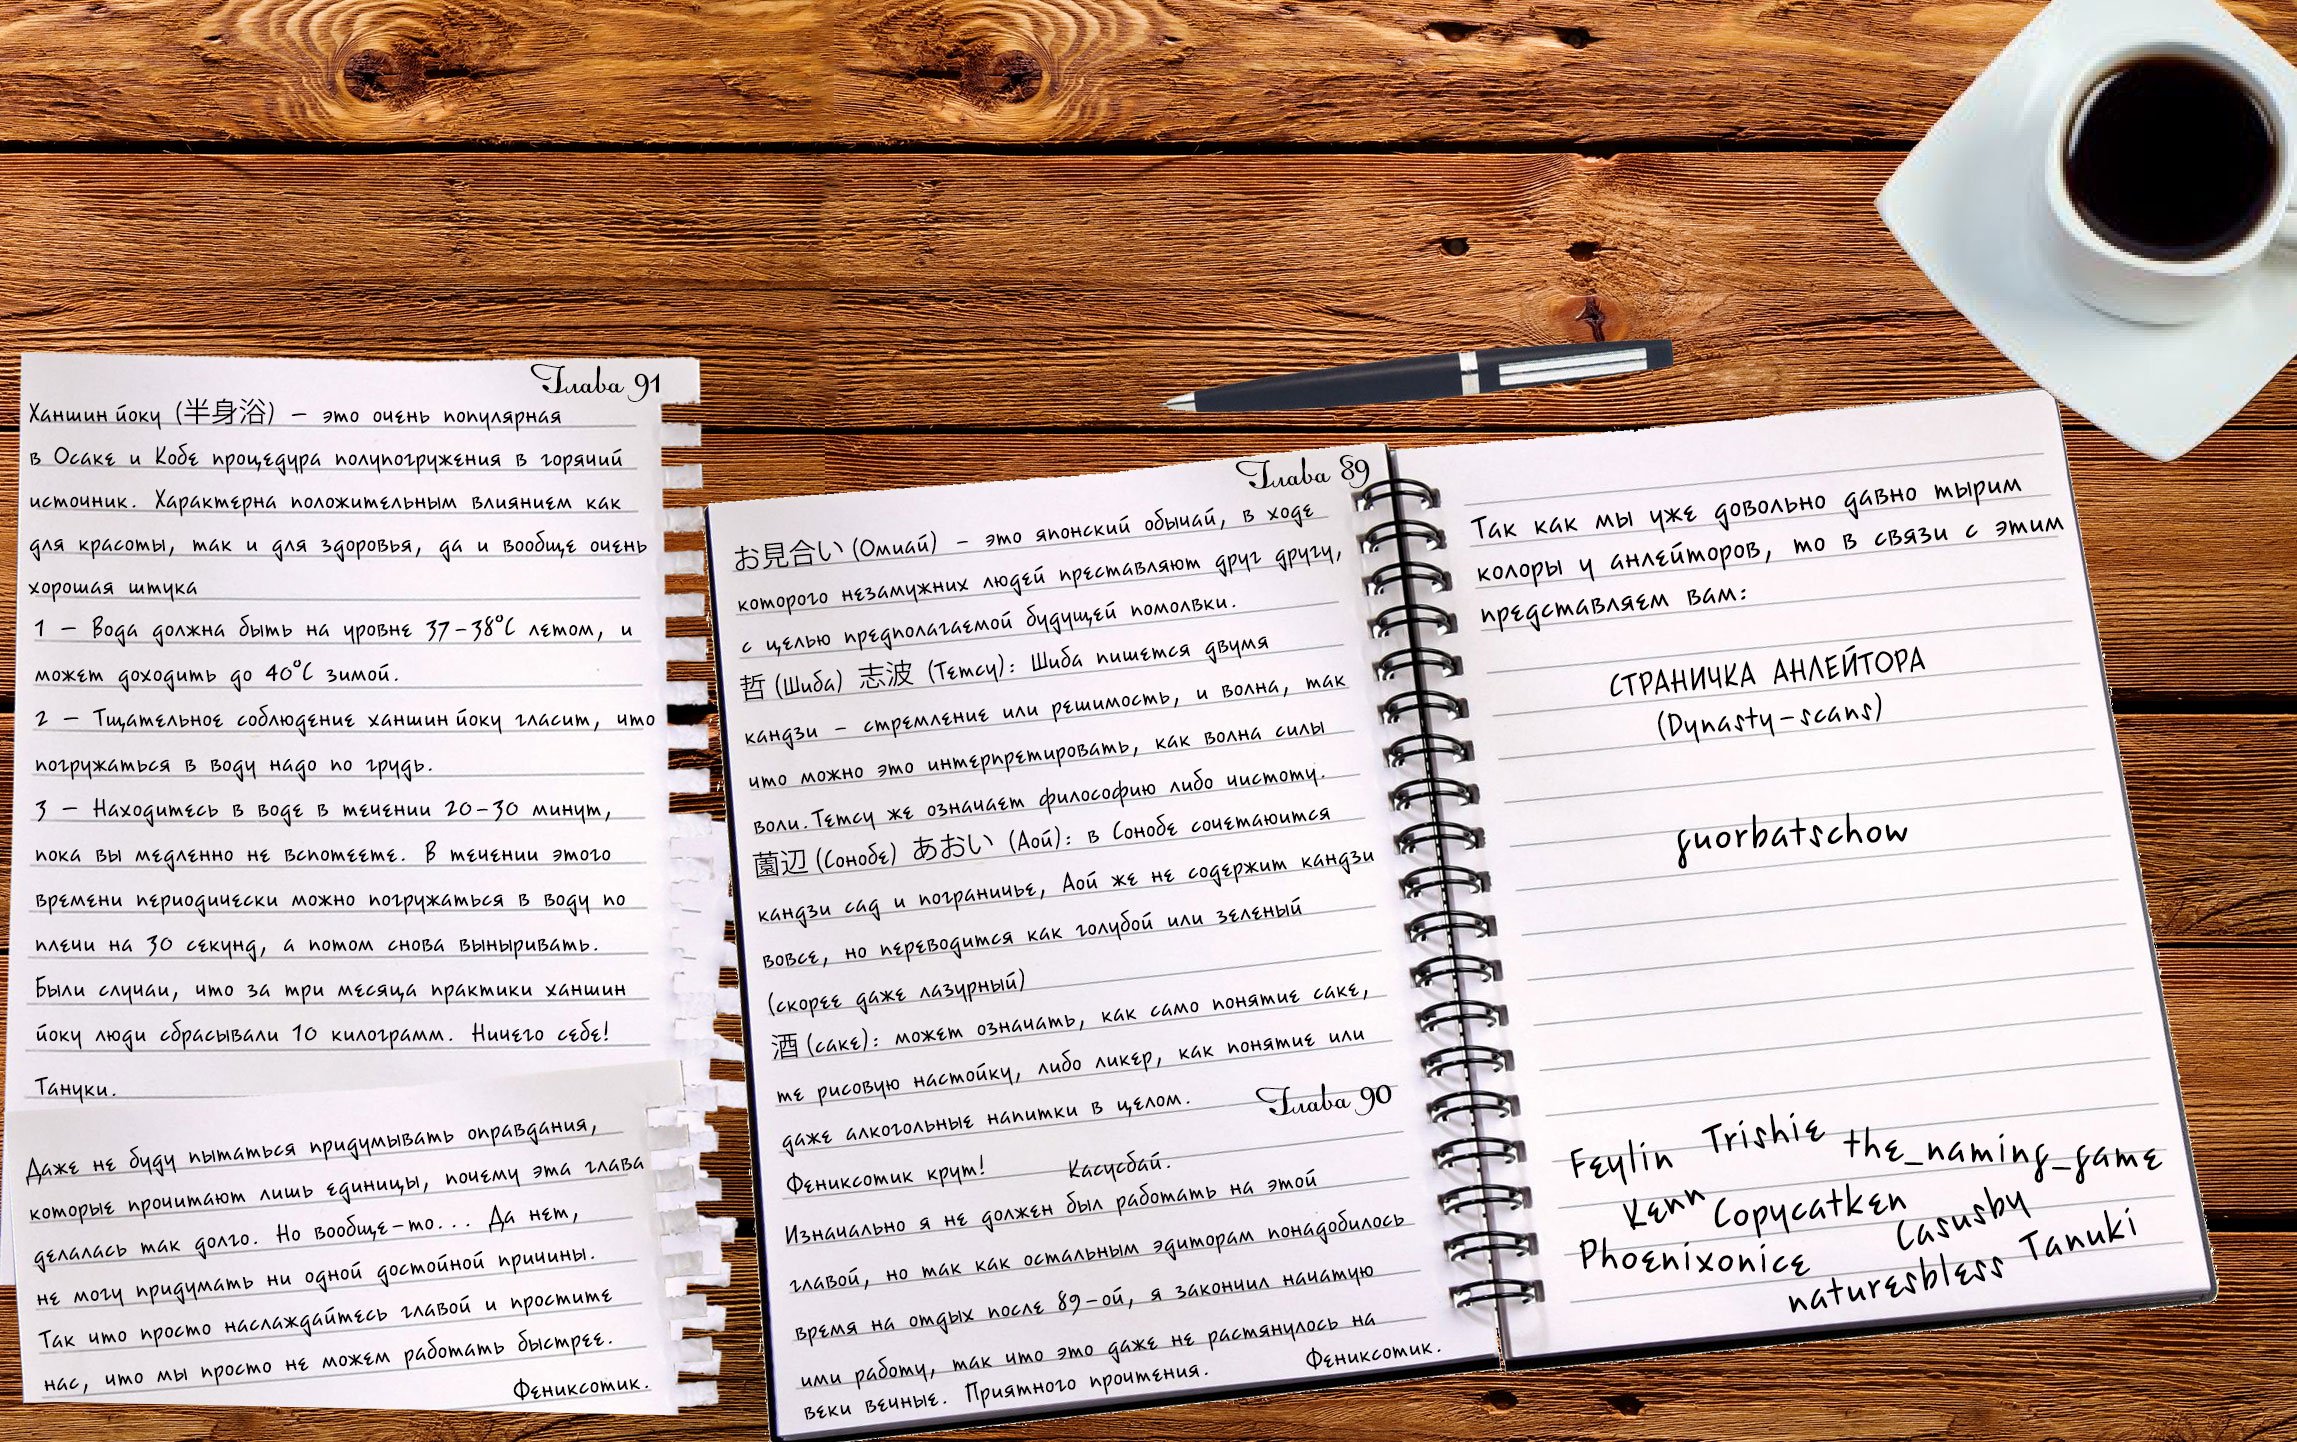 Глава 91
Ханшин йоку (半身浴) – это очень популярная
в Осаке и Кобе процедура полупогружения в горячий
источник. Характерна положительным влиянием как
для красоты, так и для здоровья, да и вообще очень
хорошая штука
1 – Вода должна быть на уровне 37-38°C летом, и
может доходить до 40°C зимой.
2 – Тщательное соблюдение ханшин йоку гласит, что
погружаться в воду надо по грудь.
3 – Находитесь в воде в течении 20-30 минут,
пока вы медленно не вспотеете. В течении этого
времени периодически можно погружаться в воду по
плечи на 30 секунд, а потом снова выныривать.
Были случаи, что за три месяца практики ханшин
йоку люди сбрасывали 10 килограмм. Ничего себе!
Тануки.
Даже не буду пытаться придумывать оправдания,
которые прочитают лишь единицы, почему эта глава
делалась так долго. Но вообще-то... Да нет,
не могу придумать ни одной достойной причины.
Так что просто наслаждайтесь главой и простите
нас, что мы просто не можем работать быстрее.
Фениксотик.
Глава 89
お見合い (Омиай) – это японский обычай, в ходе
которого незамужних людей преставляют друг другу,
с целью предполагаемой будущей помолвки.
哲 (Шиба) 志波 (Тетсу): Шиба пишется двумя
кандзи – стремление или решимость, и волна, так
что можно это интерпретировать, как волна силы
воли. Тетсу же означает философию либо чистоту.
薗辺 (Сонобе) あおい (Аой): в Сонобе сочетаюится
кандзи сад и пограничье, Аой же не содержит кандзи
вовсе, но переводится как голубой или зеленый
(скорее даже лазурный)
酒 (саке): может означать, как само понятие саке,
те рисовую настойку, либо ликер, как понятие или
даже алкогольные напитки в целом.
Глава 90
Фениксотик крут! Касусбай.
Изначально я не должен был работать на этой
главой, но так как остальным эдиторам понадобилось
время на отдых после 89-ой, я закончил начатую
ими работу, так что это даже не растянулось на
веки вечные. Приятного прочтения. Фениксотик.
Так как мы уже довольно давно тырим
колоры у анлейторов, то в связи с этим
представляем вам:
СТРАНИЧКА АНЛЕЙТОРА
(Dynasty-scans)
guorbatschow
Feylin Trishie the_naming_game
Kenn Copycatken
Phoenixonice Casusby
naturesbless Tanuki